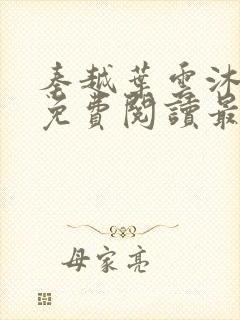 秦越葉雲沐
免費閱讀最
母家亮